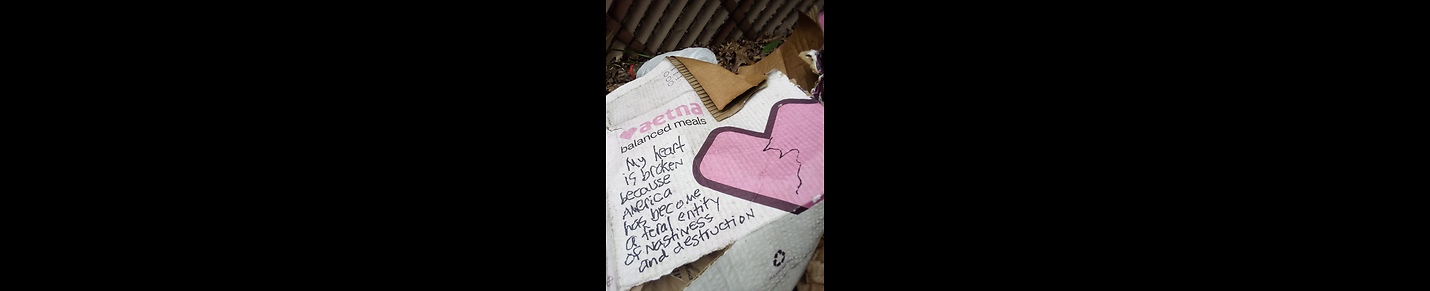 aetna
balanced meals
My heart
is broken
because
America
has become
a feral entity
of Nastiness
and destruction